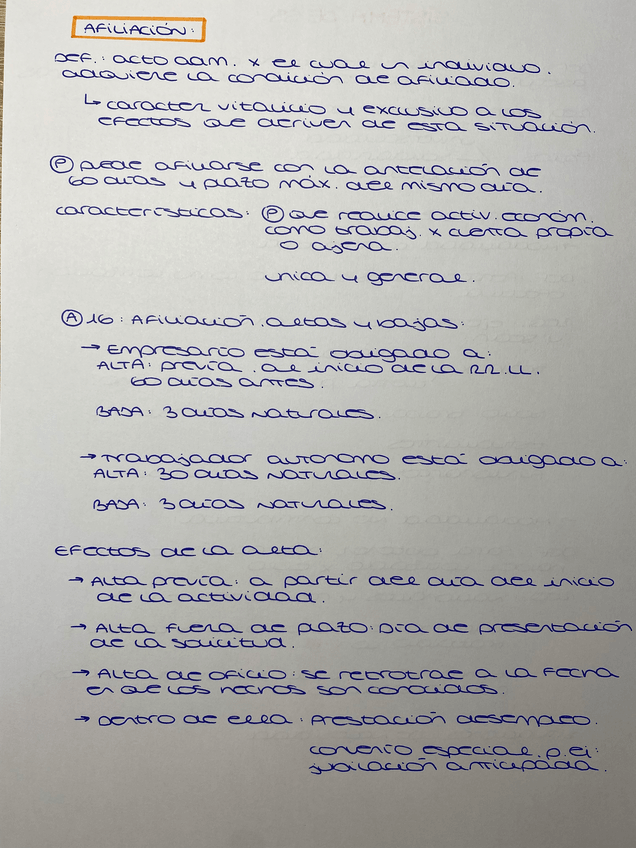 AFILIACIÓN:
DEF.: acto adm. x el cual un individuo.
adquiere la condición de afiliado.
↳ caracter vitalicio y exclusivo a los
efectos que deriven de esta situación.
Ⓟ puede afiliarse con la antelación de
60 días y plazo máx. del mismo día.
características: Ⓟ que realice activ. económ.
como trabaj. x cuenta propia
o ajena.
única y general.
Ⓐ 16: Afiliación. altas y bajas:
→ Empresario está obligado a:
ALTA: previa. al inicio de la RR.LL.
60 días antes.
BAJA: 3 días naturales.
→ Trabajador autónomo está obligado a:
ALTA: 30 días naturales.
BAJA: 3 días naturales.
EFECTOS DE LA alta:
→ Alta previa: a partir del día del inicio
de la actividad.
→ Alta fuera de plazo: Día de presentación
de la solicitud.
→ Alta de oficio: se retrotrae a la fecha
en que los hechos son conocidos.
→ Dentro de ella: Prestación desempleo.
convenio especial. p.ej:
jubilación anticipada.